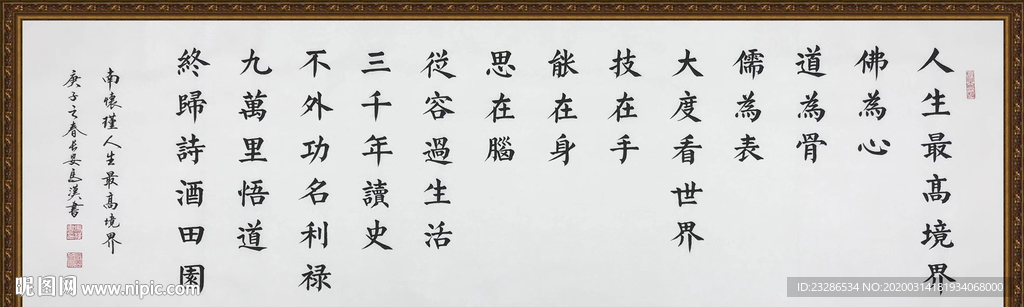 人生最高境界
佛為心
道為骨
儒為表
大度看世界
技在手
能在身
思在腦
從容過生活
三千年讀史
不外功名利禄
九萬里悟道
終歸詩酒田園
南懷瑾人生最高境界
庚子之春長安
昵图网 www.nipic.com
ID:23286534 NO:20200314181934068000